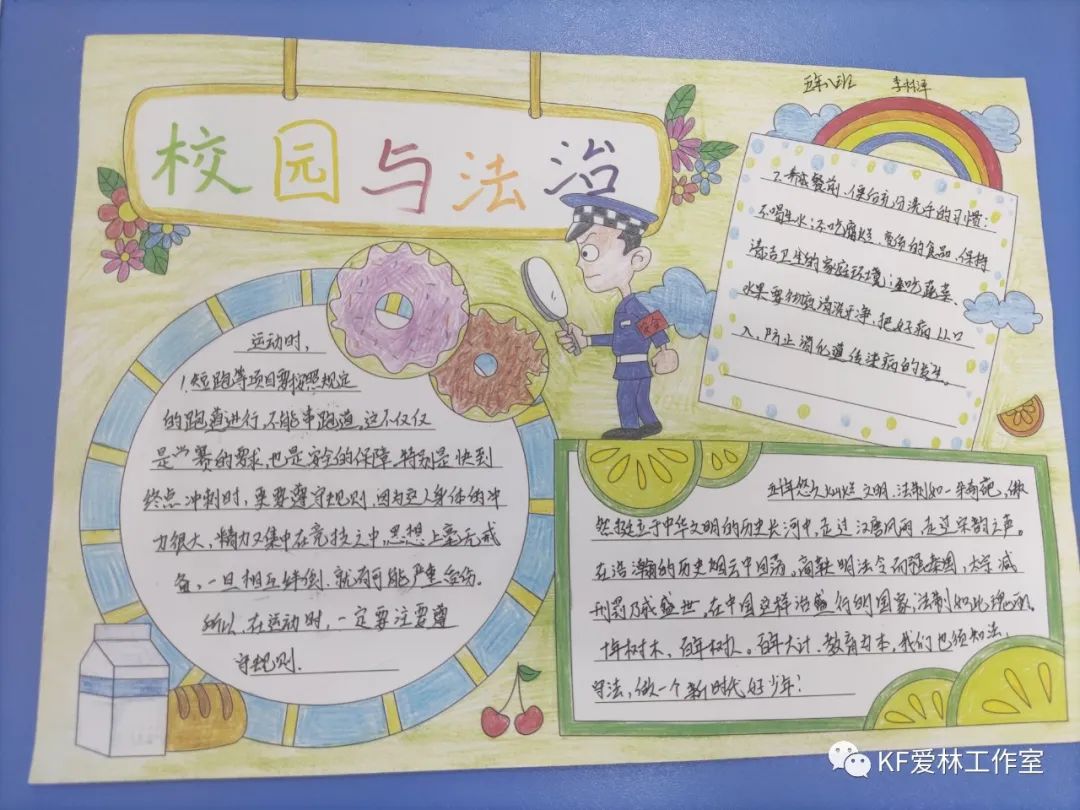 五年八班
校园与法治
运动时，
1.短跑等项目要按照规定
的跑道进行，不能串跑道。这不仅仅
是竞赛的要求，也是安全的保障。特别是快到
终点冲刺时，更要遵守规则，因为这人身体的冲
力很大，精力又集中在竞技之中，思想上毫无戒
备，一旦相互绊倒，就有可能严重受伤。
所以，在运动时，一定要注要遵
守规则.
养成餐前、便后充分洗手的习惯；
不喝生水；不吃腐烂、变质的食品，保持
清洁卫生的家庭环境；生吃蔬菜、
水果要彻底清洗干净，把好病从口
入，防止消化道传染病的发生。
五千年悠久灿烂文明，法制如一朵奇葩，傲
然挺立于中华文明的历史长河中，走过汉唐风雨，走过宋韵之声。
在浩瀚的历史烟云中回荡。商鞅明法令而强秦国，太宗减
刑罚乃成盛世。在中国这样治盛行的国家，法制如此瑰丽。
十年树木，百年树人。百年大计，教育为本，我们也须知法，
守法，做一个新时代好少年！
KF爱林工作室